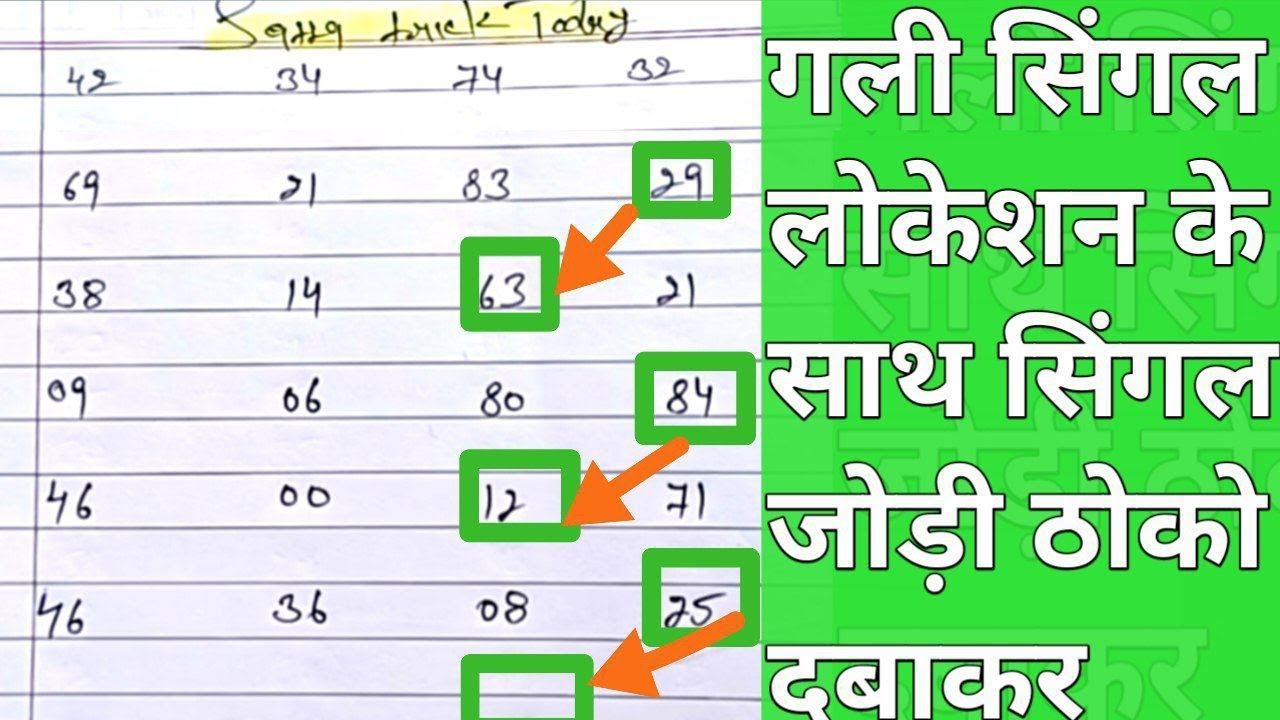 Satta trick Today
42 34 74 32
69 21 83 29
38 14 63 21
09 06 80 84
46 00 12 71
46 36 08 25
गली सिंगल
लोकेशन के
साथ सिंगल
जोड़ी ठोको
दबाकर